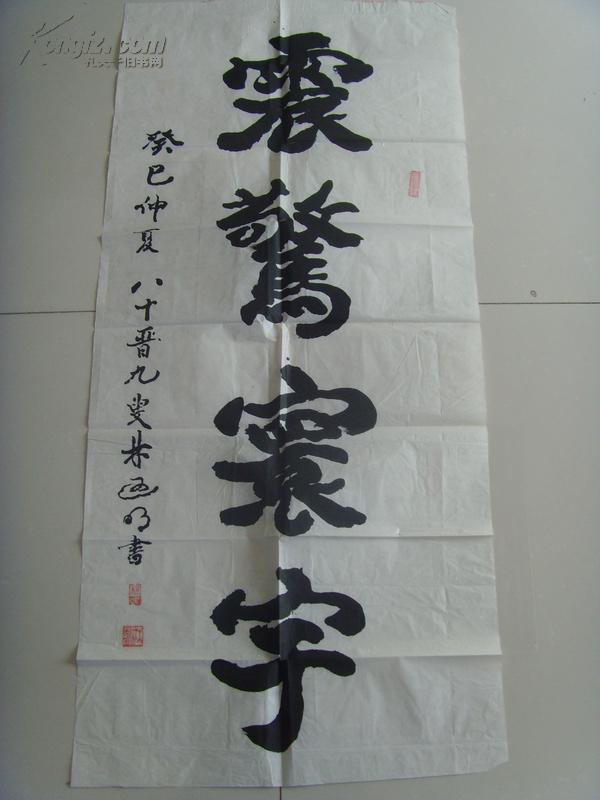 Kongfz.com
孔夫子旧书网
震驚寰宇
癸巳仲夏 八十晋九叟林明書